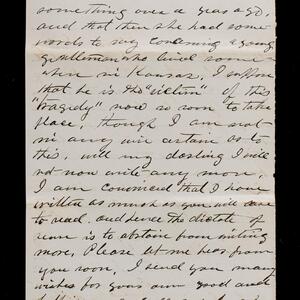 something over a year ago,
and that then she had some
words to say concerning a young
gentleman who lived some-
where in Kansas. I suppose
that he is the "victim" of this
"tragedy" now so soon to take
place, though I am not
in any wise certain as to
this, will my darling I will
not now write any more.
I am convinced that I have
written as much as you will care
to read, and hence the dictate of
is to abstain from writing
more. Please let me hear from
you soon, I send you many
wishes for your own good and